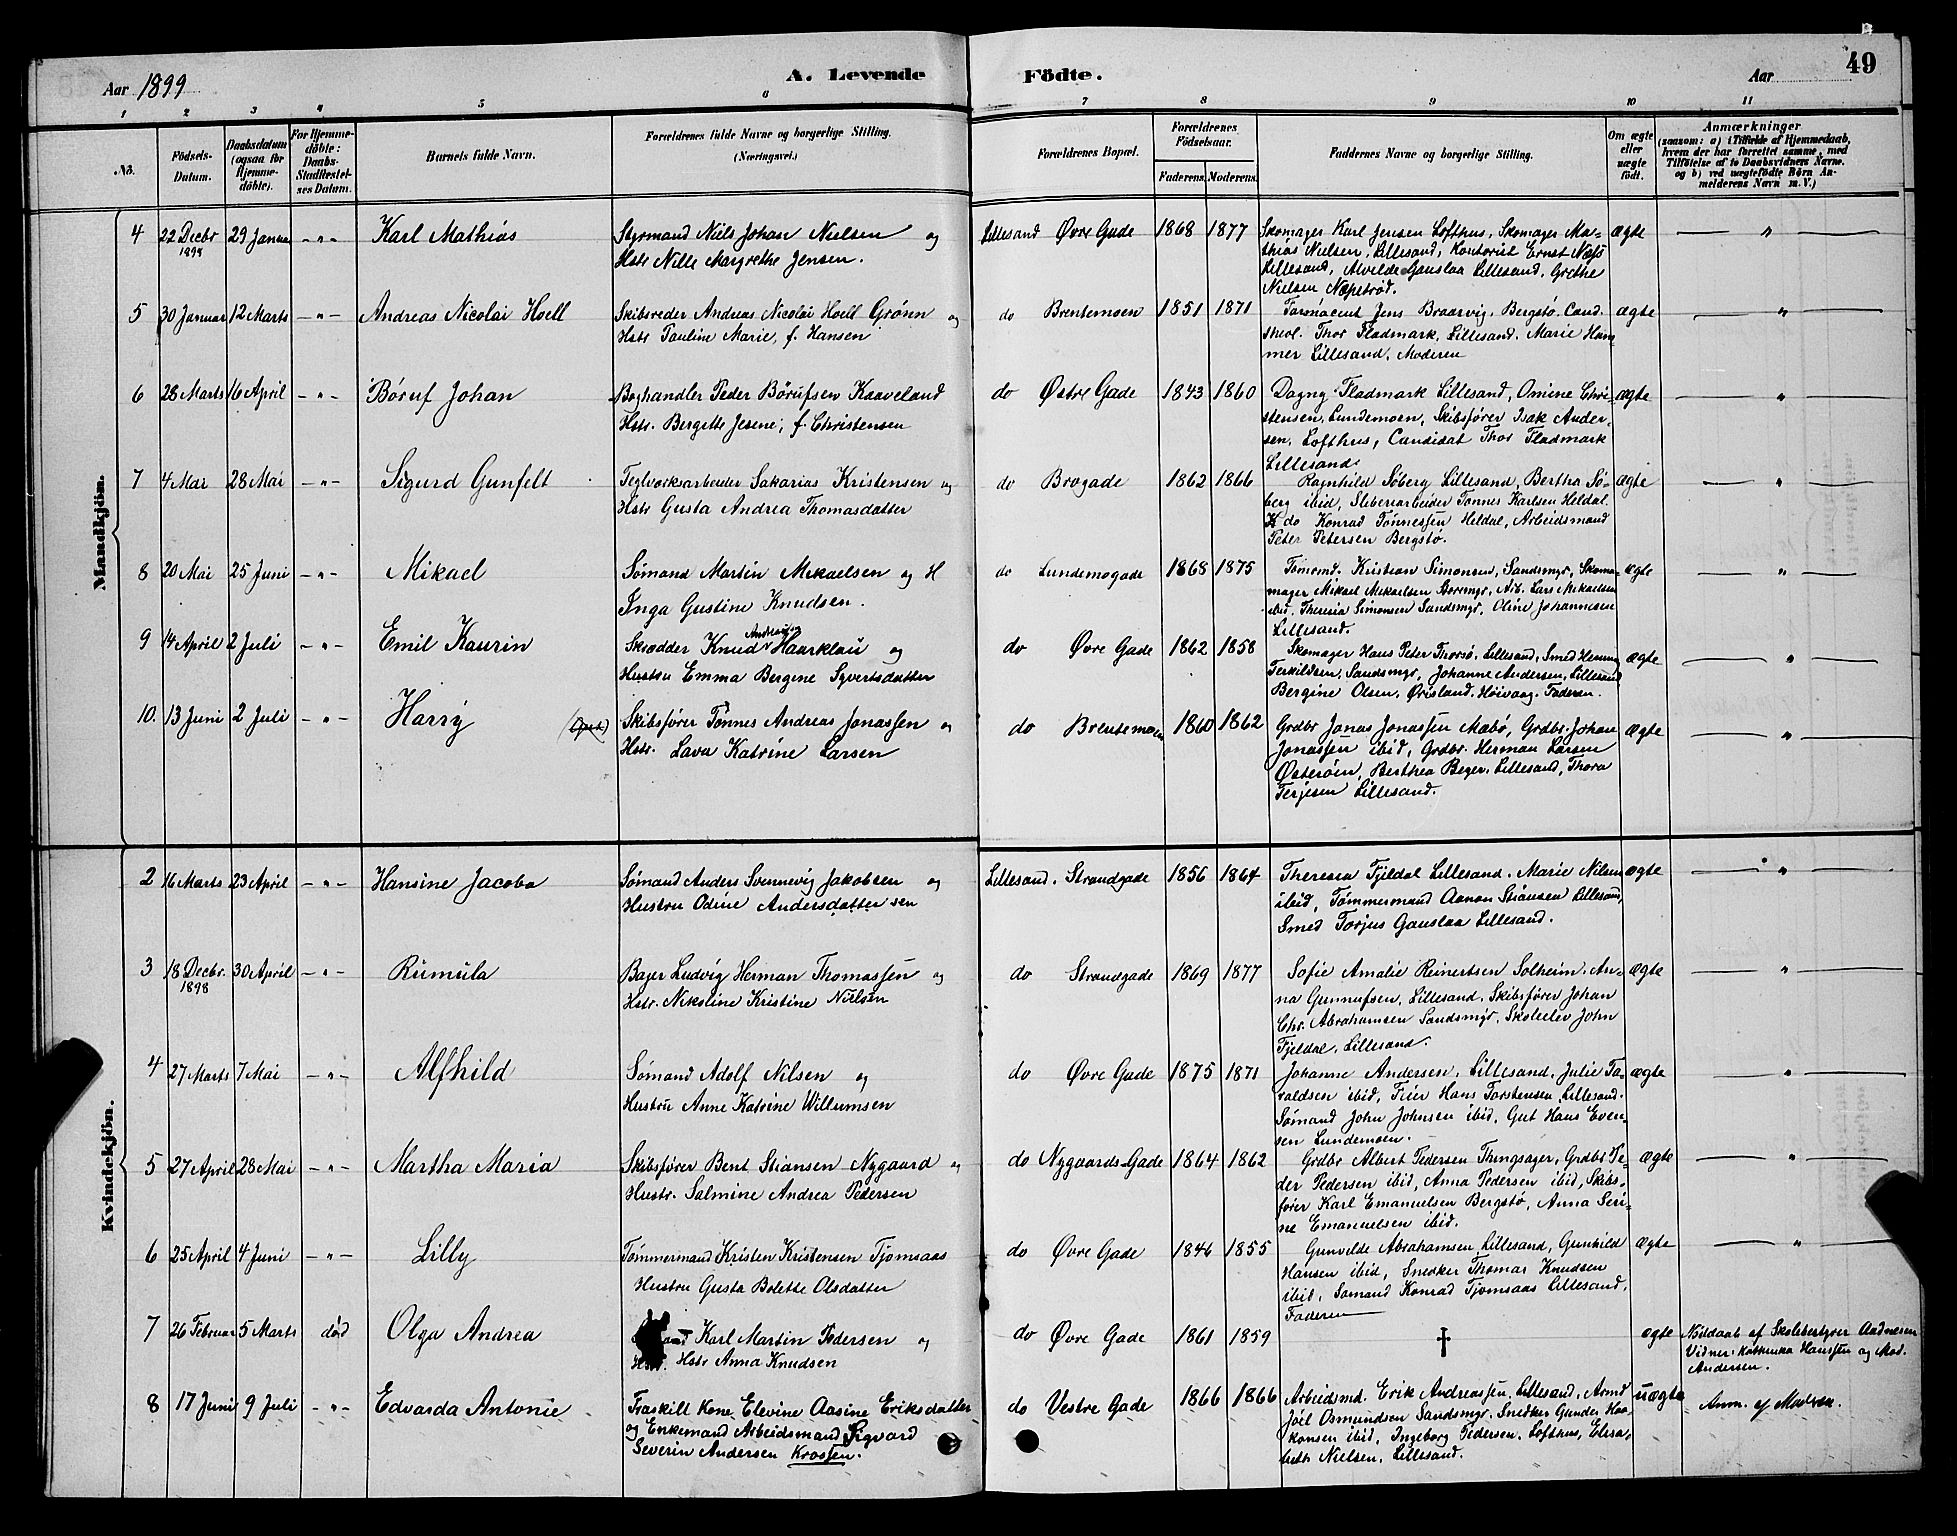 Aar 1899
A. Levende Födte.
Aar
49
1 2 3 4 5 6 7 8 9 10 11
No.
Födsels-Datum.
Daabsdatum (ogsaa for Hjemme-döbte).
For Hjemme-döbte: Daabs-Stadfæstelses Datum.
Barnets fulde Navn.
Forældrenes fulde Navne og borgerlige Stilling. (Næringsvei.)
Forældrenes Bopæl.
Forældrenes Födselsaar.
Faderens. Moderens.
Faddernes Navne og borgerlige Stilling.
Om ægte eller uægte födt.
Anmærkninger
(saasom: a) i Tilfælde af Hjemmedaab, hvem der har forrettet samme, med Tilföielse af to Daabsvidners Navne, og b) ved uægtefödte Börn Anmelderens Navn m. V.)
Mandkjön.
4 22 Decbr 1898 29 Januar -"- Karl Mathias
Styrmand Niels Johan Nielsen og
Hstr Nille Margrethe Jensen.
Lillesand Øvre Gade 1868 1877
Skomager Karl Jensen Lofthus, Skomager Ma-
thias Nielsen, Lillesand, Kontorist Ernst Næss
Lillesand, Alvilde Gauslaa Lillesand, Grethe
Nielsen Næpetrød.
ægte — " —
5 30 Januar 12 Marts -"- Andreas Nicolai Hoell
Skibsreder Andreas Nicolai Hoell Grønn og
Hstr Pauline Marie, f. Hansen
do Brentemoen 1851 1871
Jens Braarvig, Bergstø. Cand.
theol. Thor Fladmark, Lillesand, Marie Ham-
mer Lillesand, Moderen
ægte — " —
6 28 Marts 16 April -"- Böruf Johan
Boghandler Peder Börufsen Kaaveland
Hstr. Bergitte Jesine, f. Christensen
do Østre Gade 1843 1860
Dagny Fladmark Lillesand, Omine Chri-
stensen, Lundemoen, Skibsfører Isak Ander-
sen, Lofthus, Candidat Thor Fladmark
Lillesand.
ægte — " —
7 4 Mai 28 Mai -"- Sigurd Gunfelt
Teglverksarbeider Sakarias Kristensen og
Hstr Gusta Andrea Thomasdatter
do Brogade 1862 1866
Ragnhild Søberg Lillesand, Bertha Sø-
berg ibid, Sliberiarbeider Tønnes Karlsen Heldal.
do Konrad Tønnessen Heldal, Arbeidsmand
Peter Petersen Bergstø.
ægte — " —
8 20 Mai 25 Juni -"- Mikael
Sømand Martin Mikaelsen og H
Inga Gustine Knudsen.
do Lundemogade 1868 1875
Tømmd. Kristian Simonsen, Sandsmyr, Skoma-
mager Mikael Mikaelsen Storemyr, Arb. Lars Mikaelsen
ibid. Theresia Simonsen Sandsmyr, Oline Johannesen
Lillesand.
ægte — " —
9 14 April 2 Juli -"- Emil Kaurin
Skrædder Knud Andreas Haarklau og
Hustru Emma Bergine Syvertsdatter
do Øvre Gade 1862 1858
Skomager Hans Peter Thorsø, Lillesand, Smed
Terkildsen, Sandsmyr, Johanne Andersen, Lillesand
Bergine Olsen, Ørisland, Høivaag. Faderen.
ægte — " —
10. 13 Juni 2 Juli -"- Harry
Skibsfører Tønnes Andreas Jonassen og
Hstr. Lava Katrine Larsen
do Brentemoen 1860 1862
Grdbr Jonas Jonassen Mæbø, Grdbr. Johan
Jonassen ibid, Grdbr. Herman Larsen
Østerøen, Berthea Beger, Lillesand, Thora
Terjesen Lillesand.
ægte — " —
Kvindekjön.
2 16 Marts 23 April -"- Hansine Jacoba
Sømand Anders Svennevig Jakobsen og
Hustru Odine Andersdatter sen
Lillesand. Strandgade 1856 1864
Theresia Fjeldal Lillesand. Marie Nilsen
ibid, Tømmermand Aanon Stiansen Lillesand,
Smed Torjus Gauslaa Lillesand.
ægte — " —
3 18 Decbr. 1898 30 April -"- Rumula
Bager Ludvig Herman Thomassen og
Hstr. Nikoline Kristine Nielsen
do Strandgade 1869 1877
Sofie Amalie Reinertsen Solheim. An-
na Gunnufsen, Lillesand. Skibsfører Johan
Chr. Abrahamsen Sandsmyr, Skoleelev John
Fjeldal, Lillesand.
ægte — " —
4 27 Marts 7 Mai -"- Alfhild
Sømand Adolf Nilsen og
Hustru Anne Katrine Willumsen
do Øvre Gade 1875 1871
Johanne Andersen, Lillesand. Julie Ta-
raldsen ibid, Feier Hans Torstensen, Lillesand.
Sømand John Johnsen ibid, Gut Hans Even-
sen Lundemoen.
ægte — " —
5 27 April 28 Mai -"- Martha Maria
Skibsfører Bent Stiansen Nygaard og
Hustr. Salmine Andrea Pedersen
do Nygaards-Gade 1864 1862
Grdbr Albert Pedersen Thingsager, Grdbr Pe-
der Pedersen ibid, Anna Pedersen ibid, Skibs-
fører Karl Emanuelsen Bergstø, Anna Seri-
ne Emanuelsen ibid.
ægte — " —
6 25 April 4 Juni -"- Lilly
Tømmermand Kristen Kristensen Tjomsaas
Hustru Gusta Bolette Olsdatter
do Øvre Gade 1846 1855
Gunvelde Abrahamsen Lillesand, Gunhild
Hansen ibid, Snedker Thomas Knudsen
ibid, Sømand Konrad Tjomsaas Lillesand,
Faderen
ægte — " —
7 26 Februar 5 Marts død Olga Andrea
Karl Martin Pedersen og
Hstr. Hstr Anna Knudsen
do Øvre Gade 1861 1859
†
ægte
Nöddaab af Skolebestyrer Aadnesen
Vidner: Kathinka Hanssen og Mad.
Andersen.
8 17 Juni 9 Juli -"- Edvarda Antonie
Fraskilt Kone Elevine Aasine Eriksdatter
og Enkemand Arbeidsmand Sigvard
Severin Andersen Krossen.
do Vestre Gade 1866 1866
Arbeidsmd. Erik Andreassen, Lillesand, Armd
Joël Osmundsen Sandsmyr, Snedker Gunder Haa-
konsen ibid, Ingeborg Pedersen, Lofthus, Elisa-
beth Nielsen, Lillesand.
uægte
Anm. af Moderen.